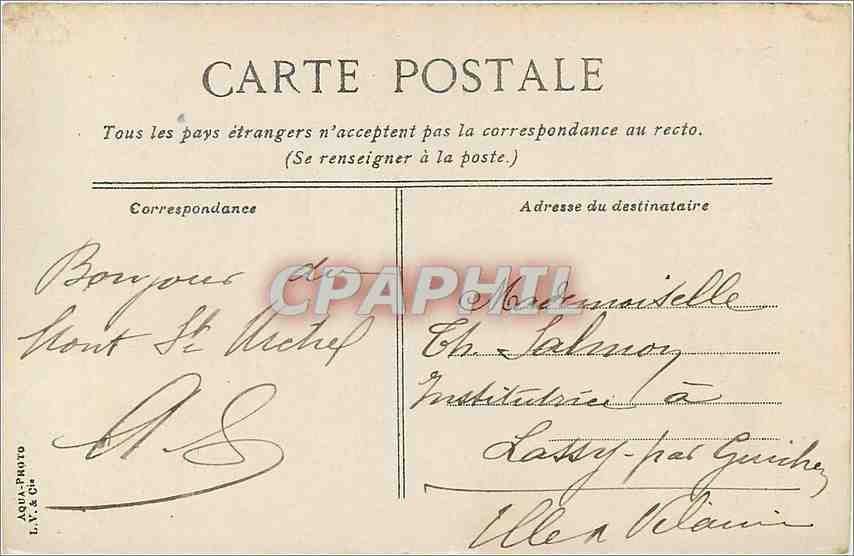 CARTE POSTALE
Tous les pays étrangers n'acceptent pas la correspondance au recto.
(Se renseigner à la poste.)
Correspondance
Bonjour du
Mont St Michel
A S
Adresse du destinataire
Mademoiselle
Th. Salmon
Institutrice à
Lassy-par Guichen
Ille & Vilaine
AQUA-PHOTO
L. V. & Cie
CPAPHIL